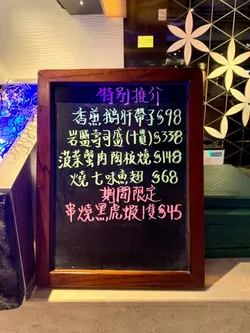 特别推介
香煎鵝肝帶子$98
岩鹽壽司盛(十貫)$338
菠菜蟹肉陶板燒$148
燒七味魚翅$68
期間限定
串燒黑虎蝦1隻$45